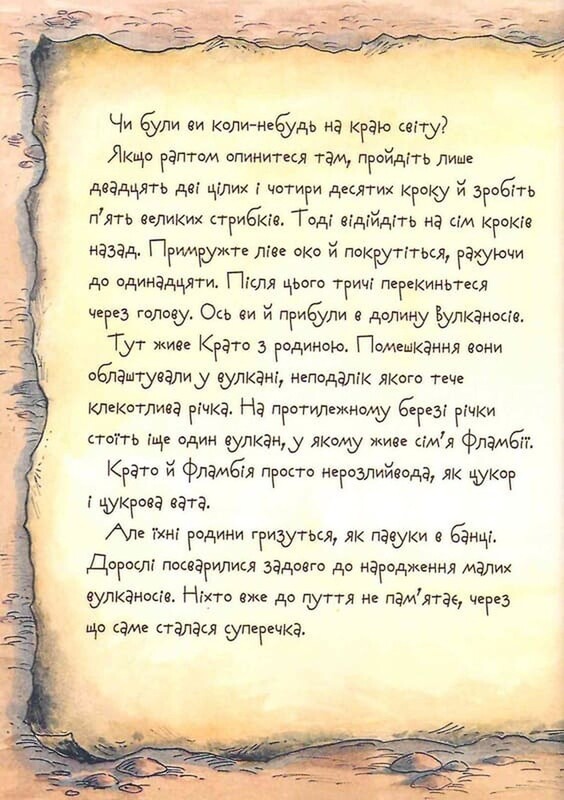 Чи були ви коли-небудь на краю світу?
Якщо раптом опинитеся там, пройдіть лише
двадцять дві цілих і чотири десятих кроку й зробіть
п'ять великих стрибків. Тоді відійдіть на сім кроків
назад. Примружте ліве око й покрутіться, рахуючи
до одинадцяти. Після цього тричі перекиньтеся
через голову. Ось ви й прибули в долину Вулканосів.
Тут живе Крато з родиною. Помешкання вони
облаштували у вулкані, неподалік якого тече
клекотлива річка. На протилежному березі річки
стоїть іще один вулкан, у якому живе сім'я Фламбії.
Крато й Фламбія просто нерозлийвода, як цукор
і цукрова вата.
Але їхні родини гризуться, як павуки в банці.
Дорослі посварилися задовго до народження малих
вулканосів. Ніхто вже до пуття не пам'ятає, через
що саме сталася суперечка.